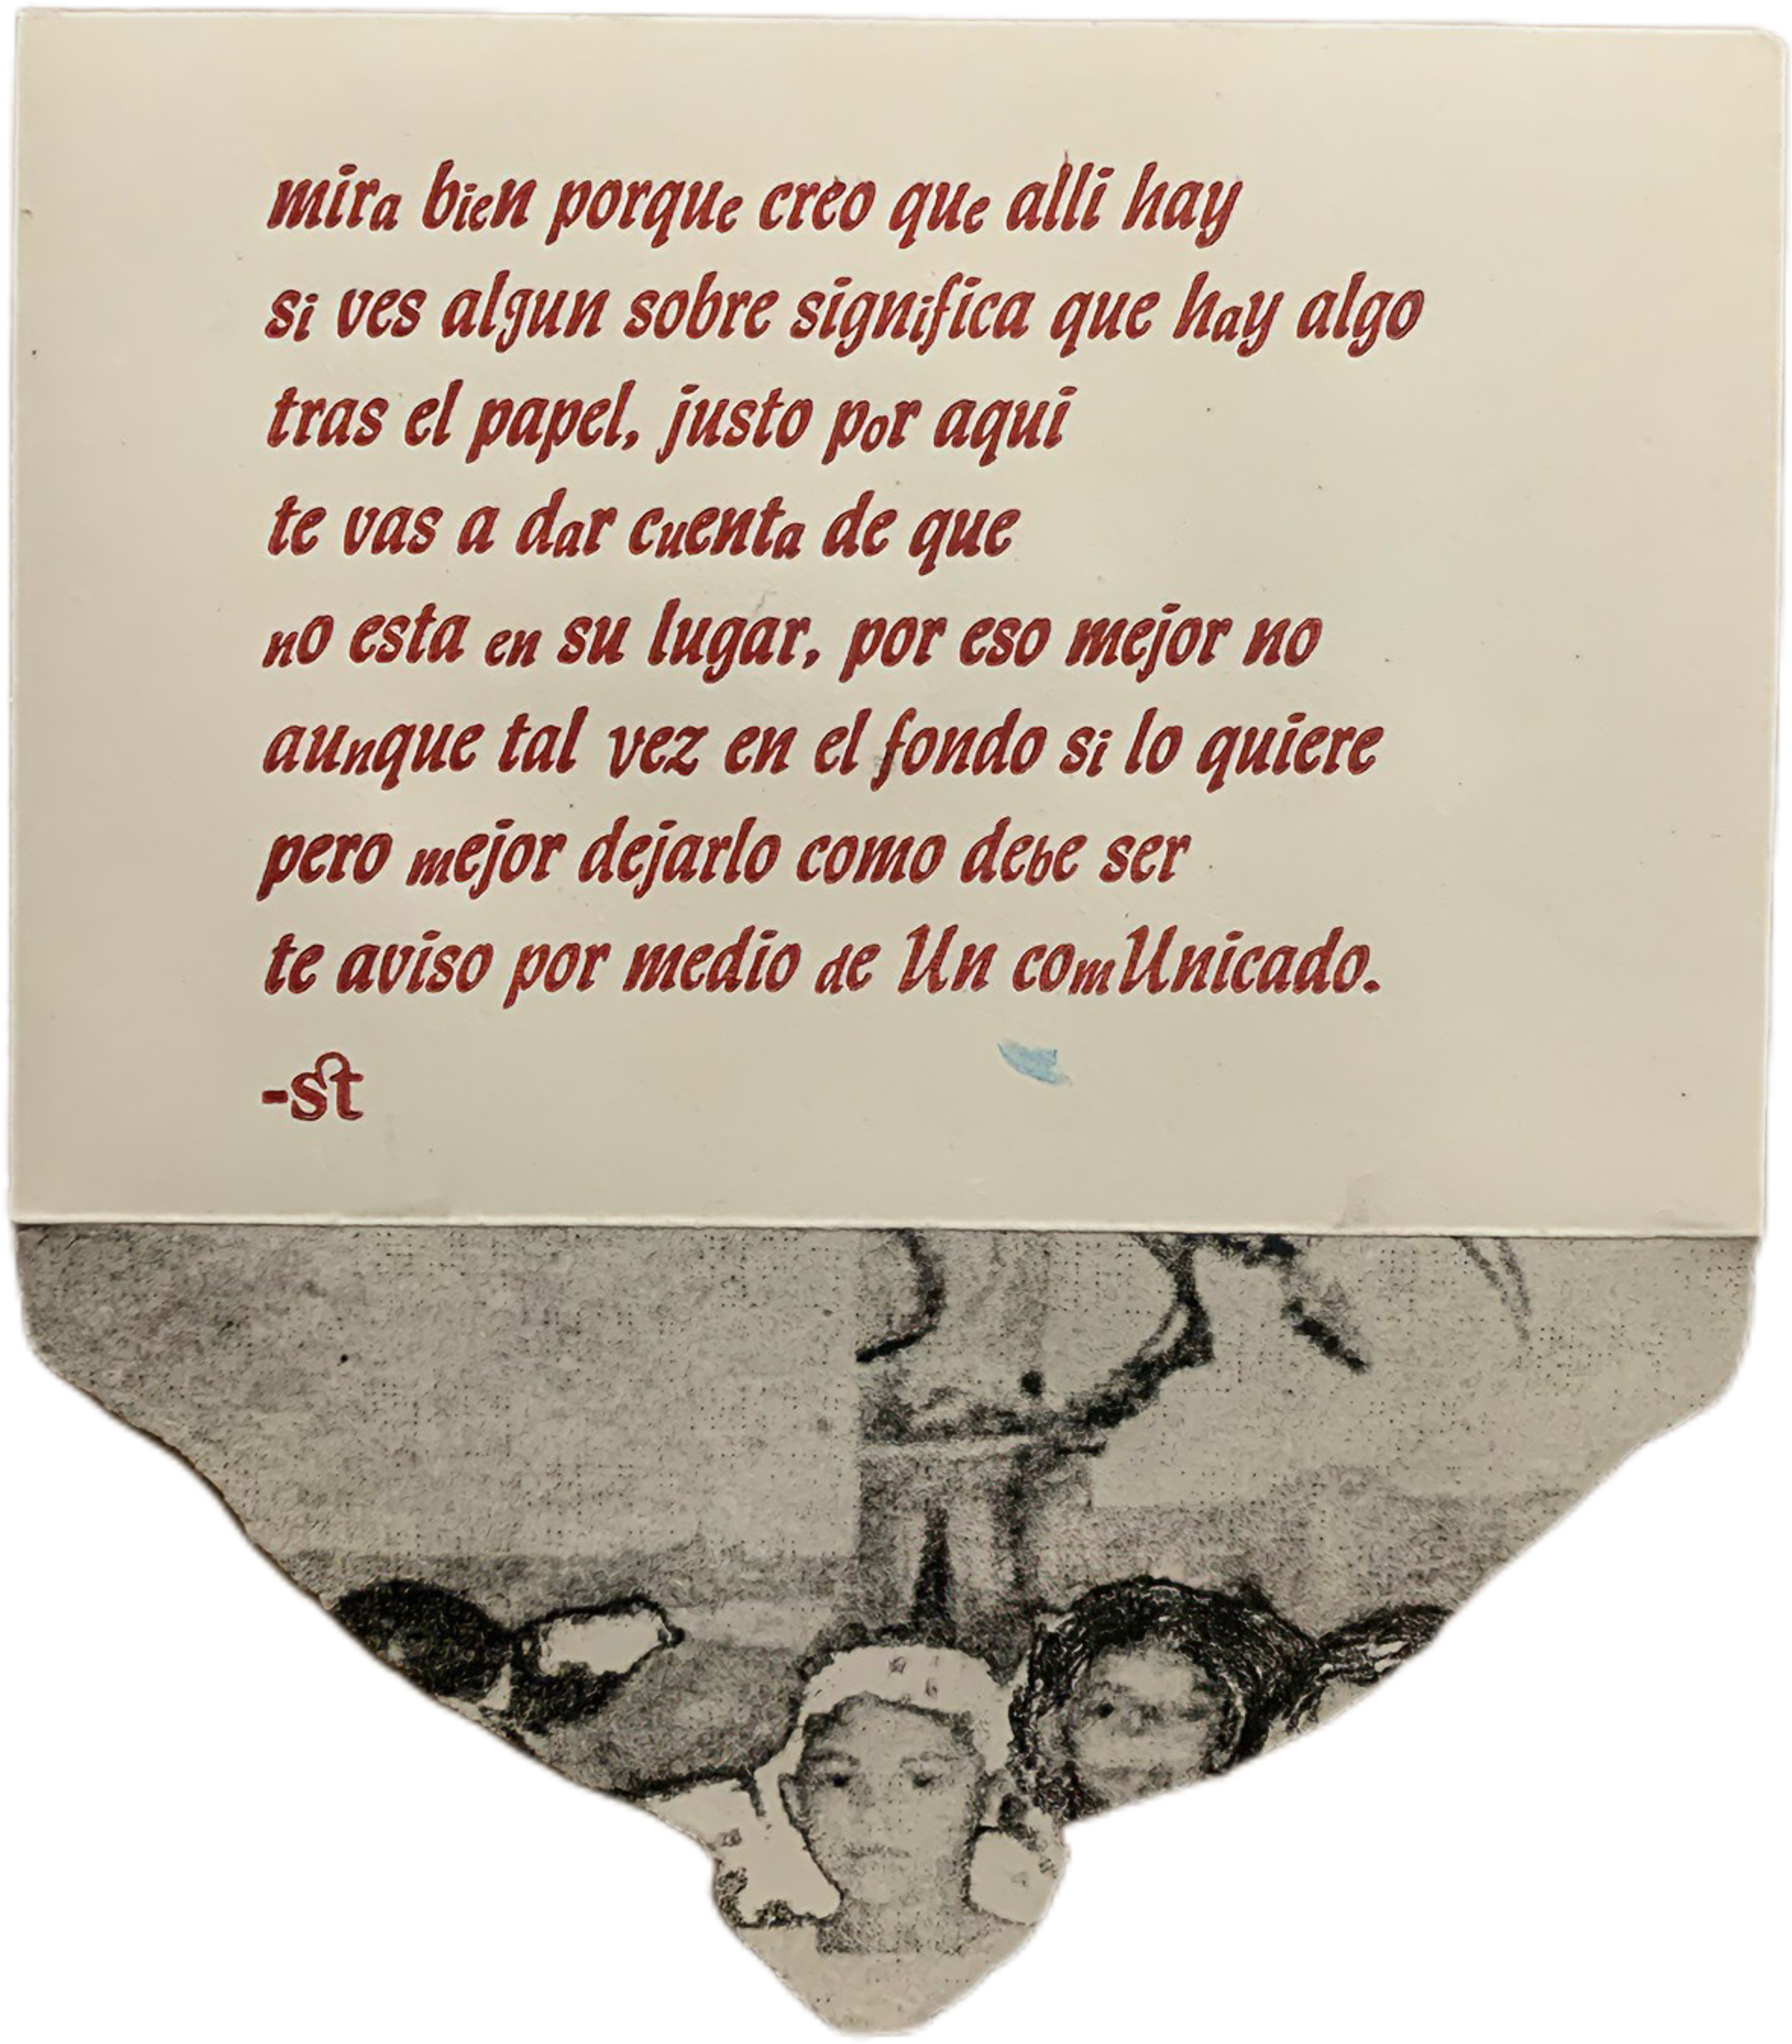 mira bien porque creo que alli hay
si ves algun sobre significa que hay algo
tras el papel, justo por aqui
te vas a dar cuenta de que
no esta en su lugar, por eso mejor no
aunque tal vez en el fondo si lo quiere
pero mejor dejarlo como debe ser
te aviso por medio de Un comUnicado.
-st